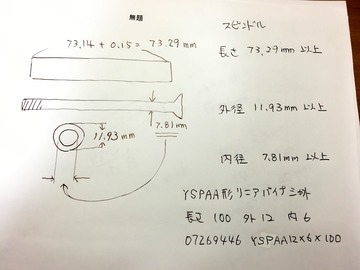 無題
スピンドル
73.14 + 0.15 = 73.29 mm
長さ 73.29 mm 以上
外径 11.93 mm 以上
7.81 mm
11.93 mm
内径 7.81 mm 以上
YSPAA形リニアパイプシャフト
長さ 100 外 12 内 6
07269446 YSPAA12×6×100